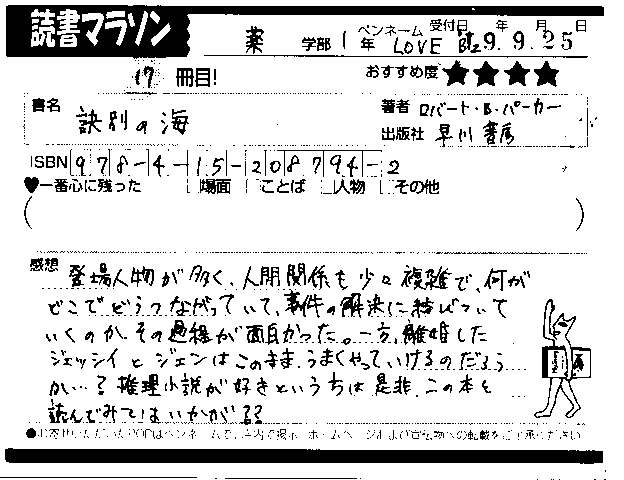 読書マラソン
薬 学部 1 年 ペンネーム LOVE B'z 受付日 年 月 日 9.9.25
17 冊目!
おすすめ度 ★★★★
書名 訣別の海
著者 ロバート・B・パーカー
出版社 早川書房
ISBN 978-4-15-208794-2
♥一番心に残った □場面 □ことば □人物 □その他
( )
感想 登場人物が多く、人間関係も少々複雑で、何が
どこでどうつながっていて、事件の解決に結びついて
いくのか、その過程が面白かった。一方、離婚した
ジェッシイとジェンはこのまま、うまくやっていけるのだろう
か…?推理小説が好きという方は是非、この本を
読んでみてはいかが??
●お寄せいただいたPOPはペンネームで、店内で掲示、ホームページおよび宣伝物への転載をご了承ください